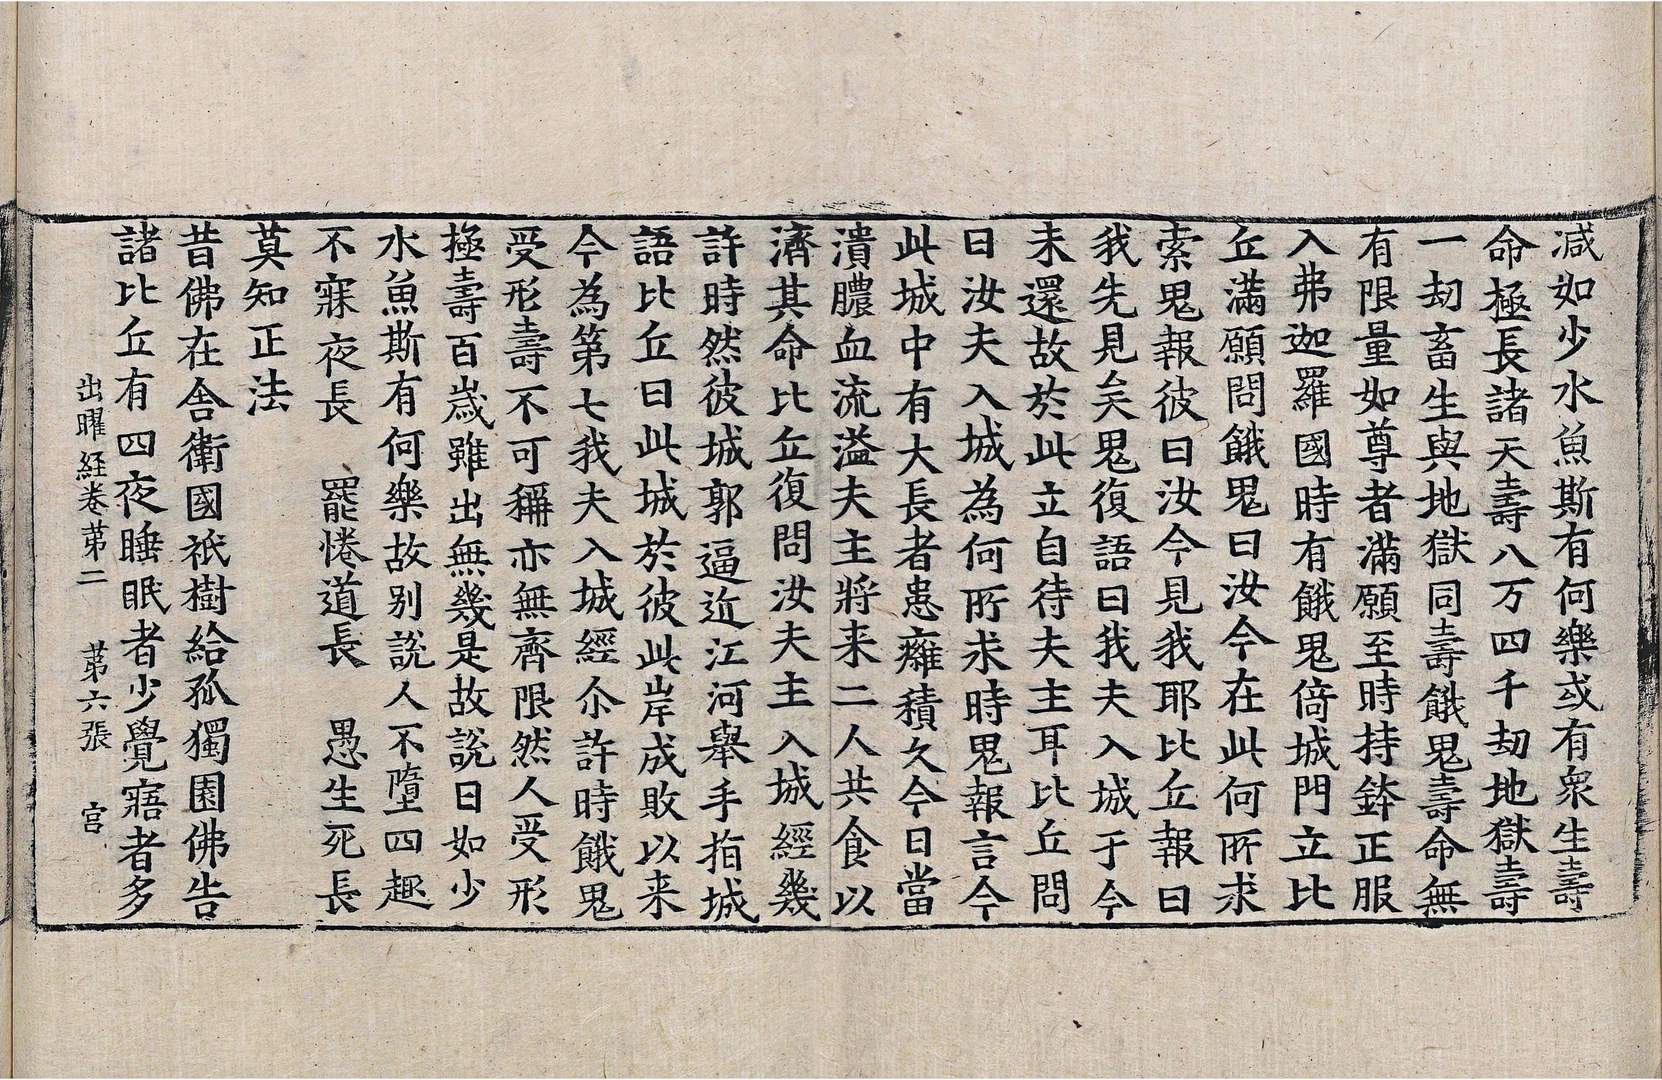 減如少水魚斯有何樂或有衆生壽
命極長諸天壽八万四千劫地獄壽
一劫畜生與地獄同壽餓鬼壽命無
有限量如尊者滿願至時持鉢正服
入弗迦羅國時有餓鬼倚城門立比
丘滿願問餓鬼曰汝今在此何所求
索鬼報彼曰汝今見我耶比丘報曰
我先見矣鬼復語曰我夫入城于今
未還故於此立自待夫主耳比丘問
曰汝夫入城為何所求時鬼報言今
此城中有大長者患癰積久今日當
潰膿血流溢夫主將来二人共食以
濟其命比丘復問汝夫主入城經幾
許時然彼城郭逼近江河舉手指城
語比丘曰此城於彼此岸成敗以来
今為第七我夫入城經尒許時餓鬼
受形壽不可稱亦無齊限然人受形
極壽百歲雖出無幾是故說曰如少
水魚斯有何樂故别說人不墮四趣
不寐夜長　罷惓道長　愚生死長
莫知正法
昔佛在舍衛國祇樹給孤獨園佛告
諸比丘有四夜睡眠者少覺寤者多
出曜経卷苐二　苐六張　宮